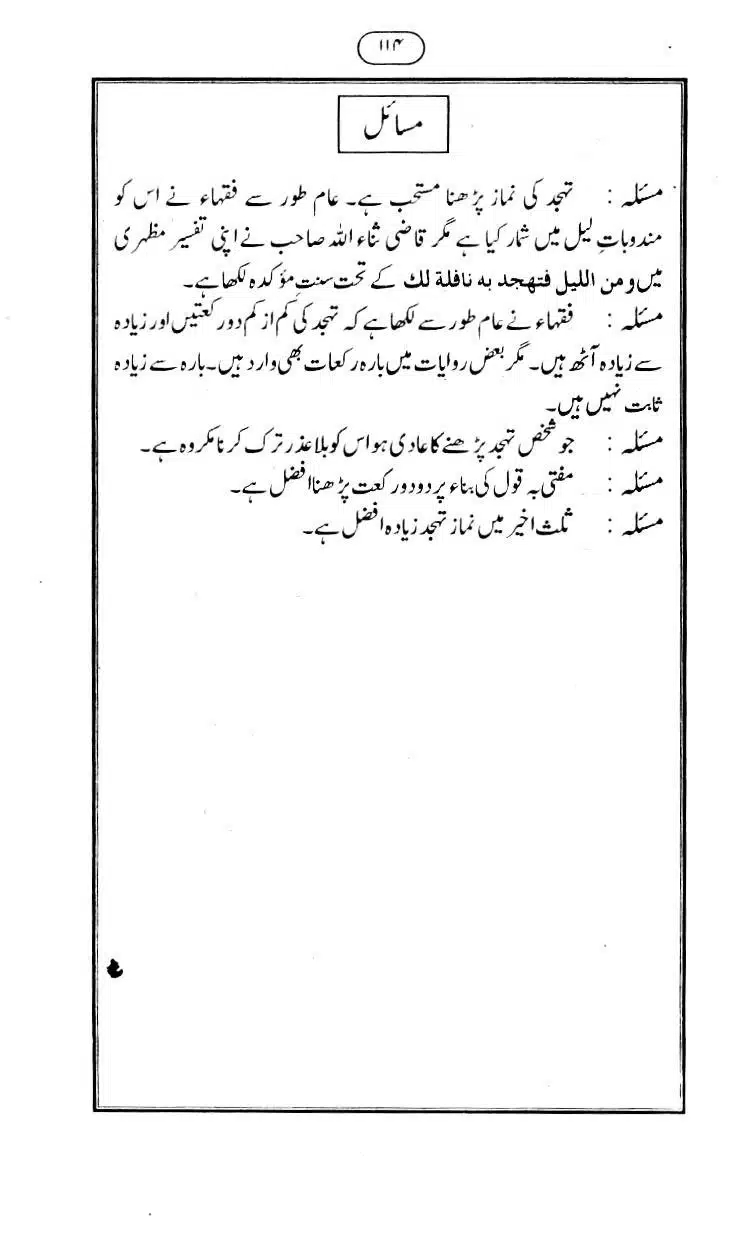 ۱۱۴
مسائل
مسئلہ : تہجد کی نماز پڑھنا مستحب ہے۔ عام طور سے فقہاء نے اس کو
مندوباتِ لیل میں شمار کیا ہے مگر قاضی ثناء اللہ صاحب نے اپنی تفسیر مظہری
میں ومن الليل فتهجد به نافلة لك کے تحت سنتِ مؤکدہ لکھا ہے۔
مسئلہ : فقہاء نے عام طور سے لکھا ہے کہ تہجد کی کم از کم دو رکعتیں اور زیادہ
سے زیادہ آٹھ ہیں۔ مگر بعض روایات میں بارہ رکعات بھی وارد ہیں۔ بارہ سے زیادہ
ثابت نہیں ہیں۔
مسئلہ : جو شخص تہجد پڑھنے کا عادی ہو اس کو بلا عذر ترک کرنا مکروہ ہے۔
مسئلہ : مفتی بہ قول کی بناء پر دو دو رکعت پڑھنا افضل ہے۔
مسئلہ : ثلث اخیر میں نماز تہجد زیادہ افضل ہے۔